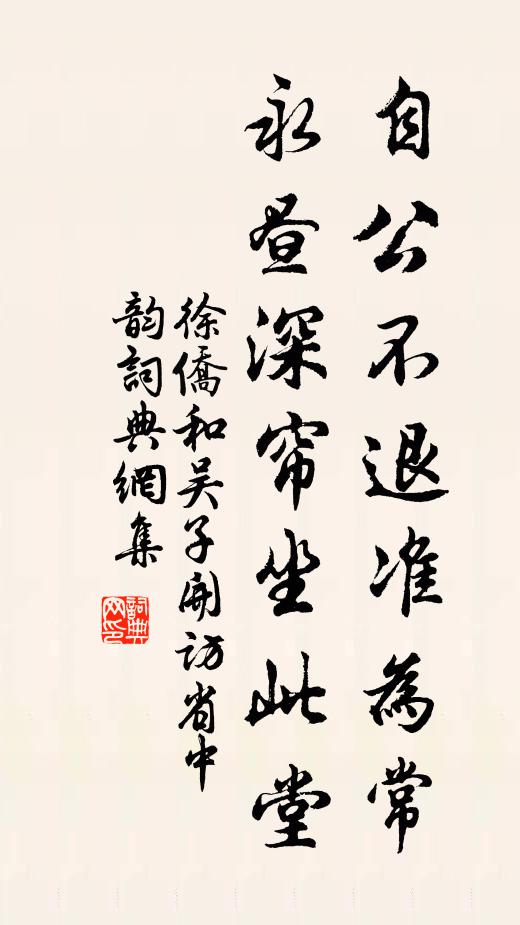 自公不退准為常
永昼深帘坐此堂
徐僑和吴子開訪省中
韵詞典網集
詞典网印